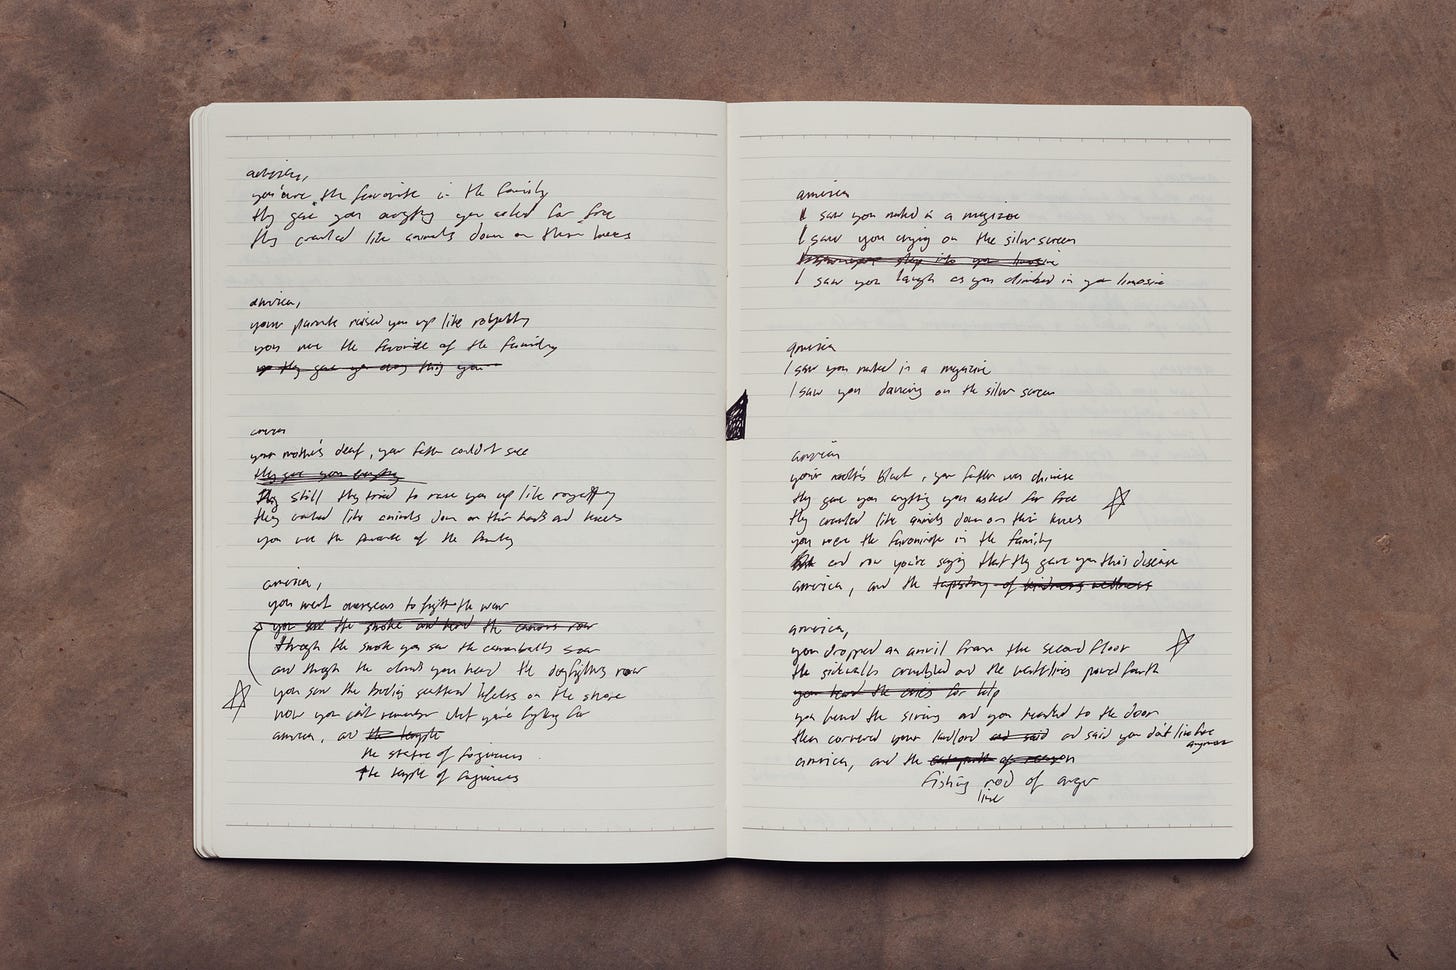 america,
you were the favorite in the family
they gave you anything you asked for free
they crawled like animals down on their knees
america,
your parents raised you up like royalty
you were the favorite of the family
they gave you any thing you
america
your mother's deaf, your father couldn't see
they gave you everything
still they tried to raise you up like royalty
they crawled like animals down on their hands and knees
you were the favorite of the family
america,
you went overseas to fight the war
you saw the smoke and heard the cannons roar
through the smoke you saw the cannonballs soar
and through the clouds you heard the dogfighters roar
you saw the bodies scattered lifeless on the shore
now you can't remember what you're fighting for
america, and the temple
the statue of forgiveness
the temple of forgiveness
america
I saw you naked in a magazine
I saw you crying on the silver screen
step into your limousine
I saw you laugh as you climbed in your limousine
america
I saw you naked in a magazine
I saw you dancing on the silver screen
america
your mother's black, your father was chinese
they gave you anything you asked for free
they crawled like animals down on their knees
you were the favorite in the family
but and now you're saying that they gave you this disease
america, and the tapestry of kindness
america,
you dropped an anvil from the second floor
the sidewalks crumbled and the poured forth
you heard the cries for help
you heard the sirens and you headed to the door
then cornered your landlord and said and said you don't live here
anymore
america, and the of reason
fishing rod of anger
line